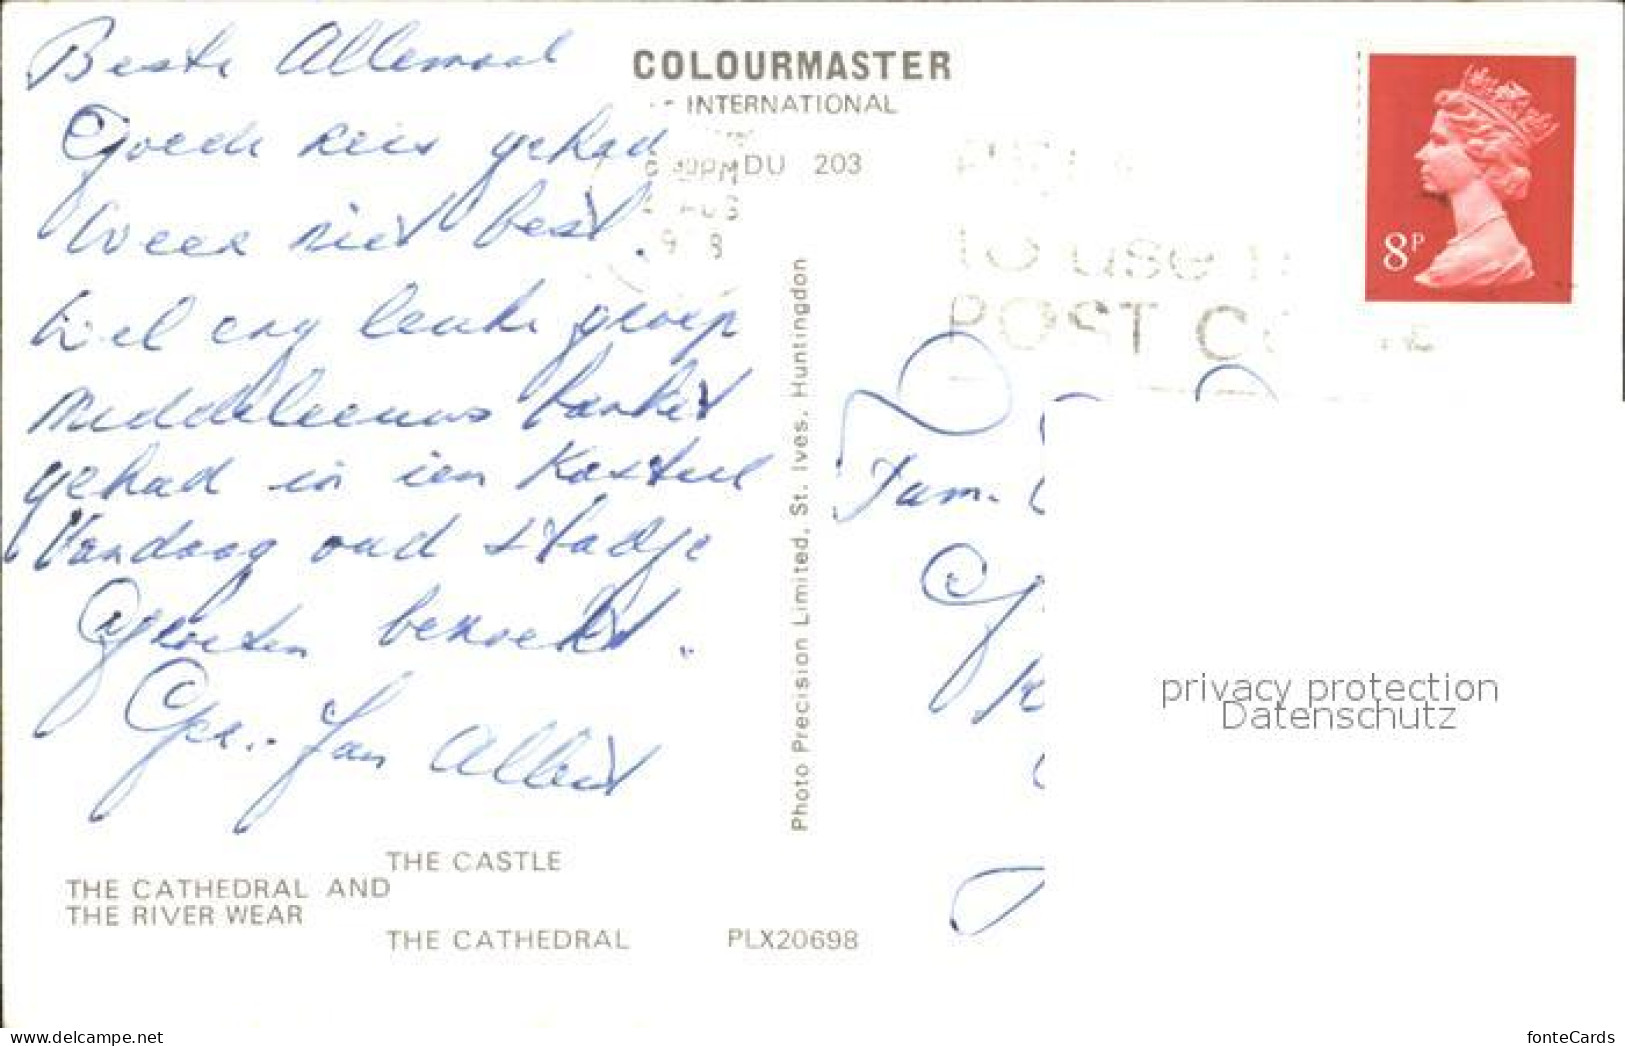 Beste Allemaal
Goede reis gehad
Weer niet best.
Wel erg leuke groep
Middeleeuws banket
gehad in een Kasteel
Vandaag oud stadje
bezocht.
Groeten
Gr.. Jan Albert
COLOURMASTER
INTERNATIONAL
PM DU 203
AUG
to use
POST CO
8P
Fam.
Photo Precision Limited, St. Ives, Huntingdon
privacy protection
Datenschutz
THE CASTLE
THE CATHEDRAL AND
THE RIVER WEAR
THE CATHEDRAL PLX20698
delcampe.net
fonteCards